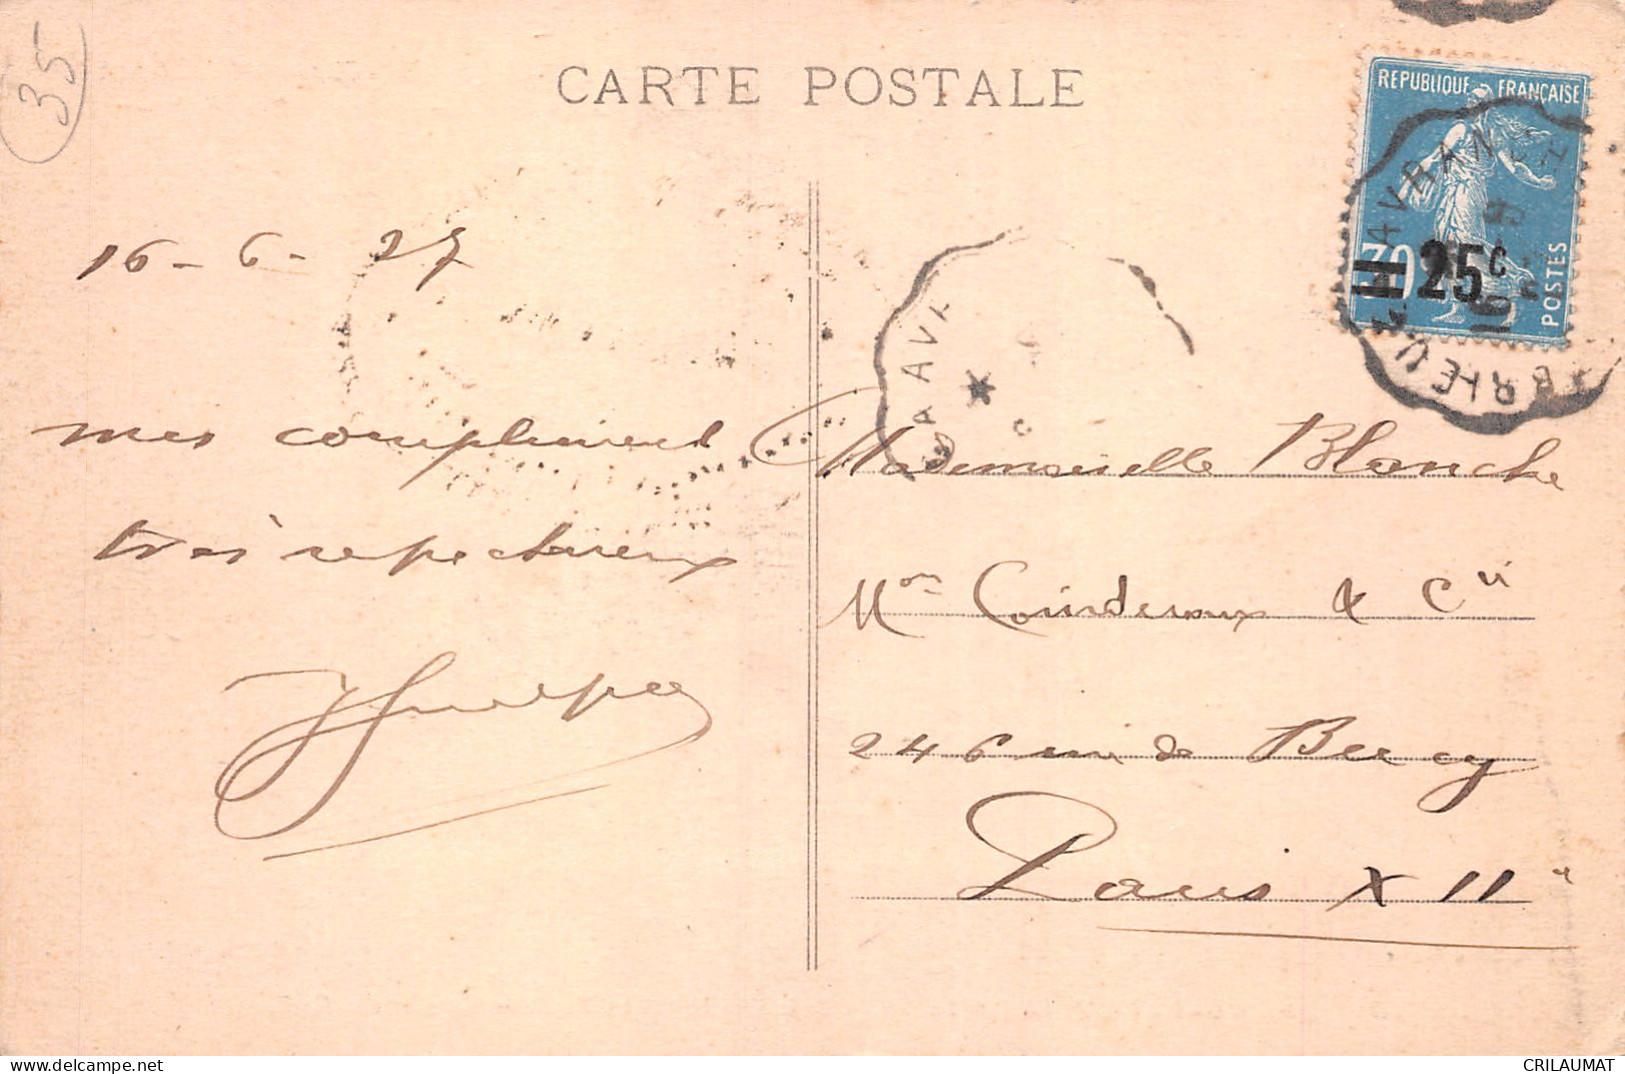 35
CARTE POSTALE
REPUBLIQUE FRANÇAISE
30
25c
POSTES
16 - 6 - 27
mes compliment
très respectueux
Mademoiselle Blanche
Mon &  Cie
246 rue de Bercy
Paris XII
CRILAUMAT